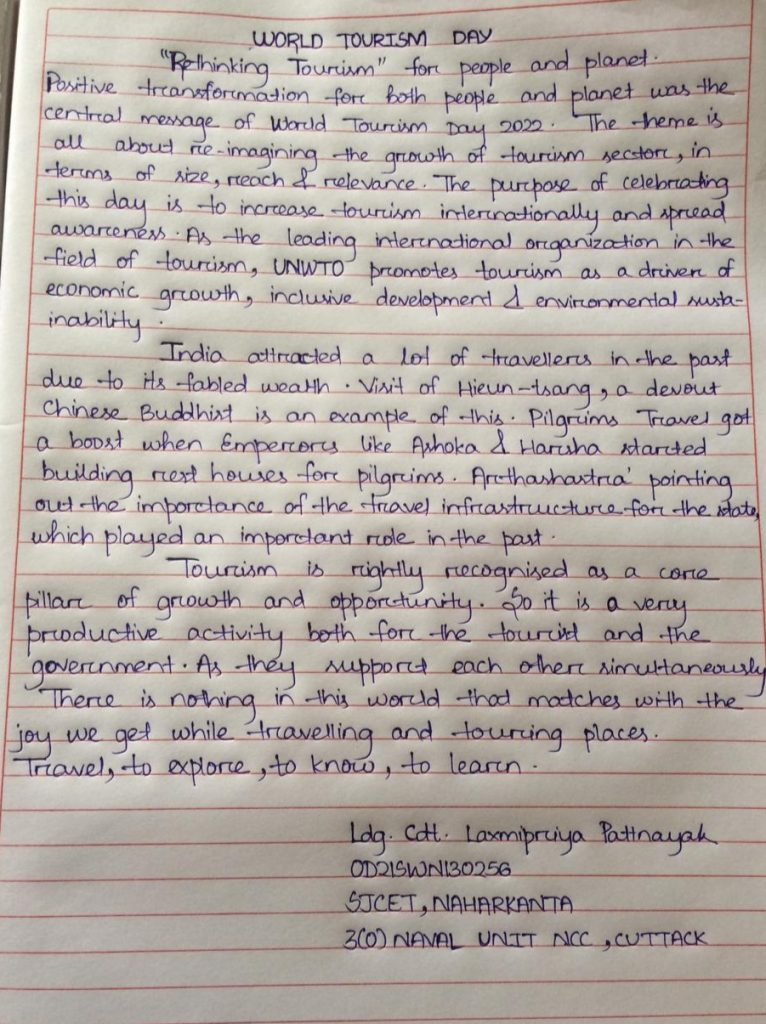 WORLD TOURISM DAY
"Rethinking Tourism" for people and planet.
Positive transformation for both people and planet was the
central message of World Tourism Day 2022. The theme is
all about re-imagining the growth of tourism sector, in
terms of size, reach & relevance. The purpose of celebrating
this day is to increase tourism internationally and spread
awareness. As the leading international organization in the
field of tourism, UNWTO promotes tourism as a driver of
economic growth, inclusive development & environmental susta-
inability.
India attracted a lot of travellers in the past
due to its fabled wealth. Visit of Hieun-tsang, a devout
Chinese Buddhist is an example of this. Pilgrims Travel got
a boost when Emperors like Ashoka & Harsha started
building rest houses for pilgrims. Arthashastra' pointing
out the importance of the travel infrastructure for the state,
which played an important role in the past.
Tourism is rightly recognised as a core
pillar of growth and opportunity. So it is a very
productive activity both for the tourist and the
government. As they support each other simultaneously
There is nothing in this world that matches with the
joy we get while travelling and touring places.
Travel, to explore, to know, to learn.
Ldg. Cdt. Laxmipriya Pattnayak
OD21SWN130256
SJCET, NAHARKANTA
3(O) NAVAL UNIT NCC, CUTTACK